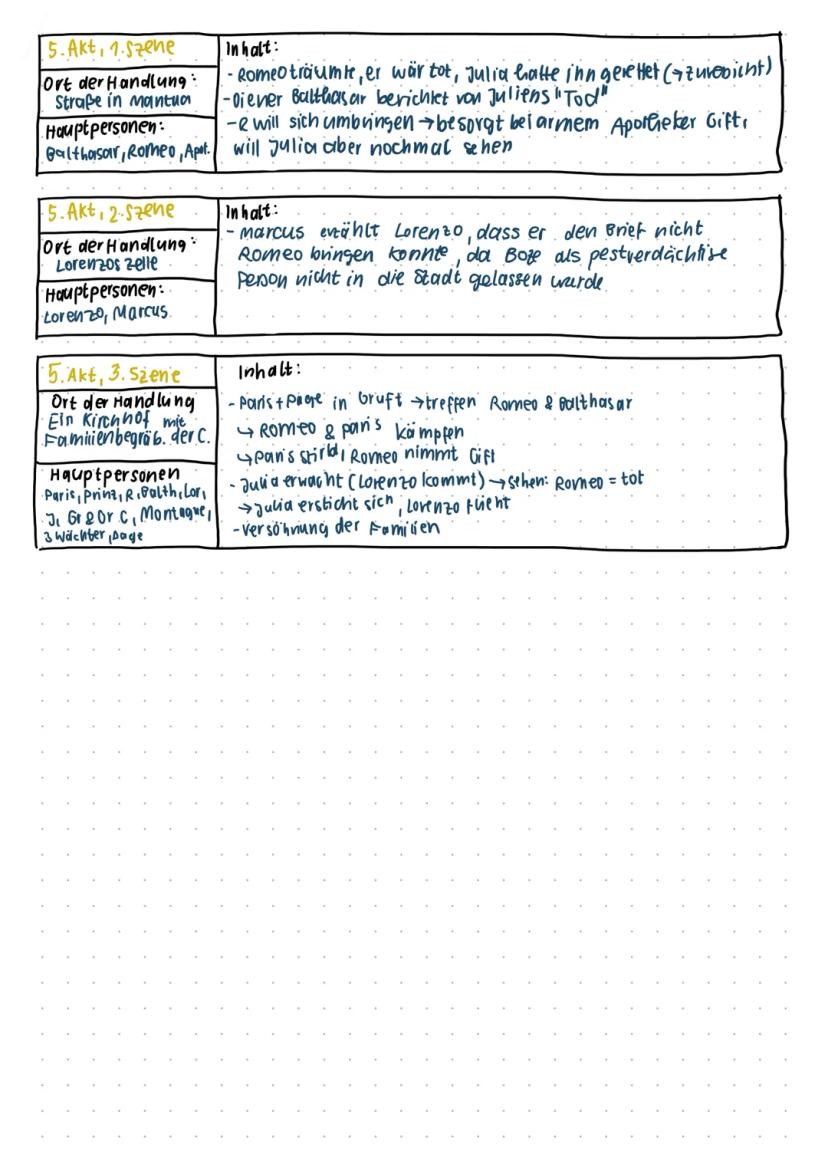 5. Akt, 1. Szene
Ort der Handlung:
Straße in Mantua
Hauptpersonen:
Balthasar, Romeo, Apot.
Inhalt:
- Romeo träumte, er wär tot, Julia hatte ihn gerettet (→ zuversicht)
- Diener Balthasar berichtet von Juliens "Tod"
- R will sich umbringen → besorgt bei armem Apotheker Gift,
will Julia aber nochmal sehen
5. Akt, 2. Szene
Ort der Handlung:
Lorenzos Zelle
Hauptpersonen:
Lorenzo, Marcus
Inhalt:
- Marcus erzählt Lorenzo, dass er den Brief nicht
Romeo bringen konnte, da Bote als pestverdächtige
Person nicht in die Stadt gelassen wurde
5. Akt, 3. Szene
Ort der Handlung
Ein Kirchhof mit
Familienbegräb. der C.
Hauptpersonen
Paris, Prinz, R, Balth, Lor,
J, Gr & Gr C, Montague,
3 Wächter, Page
Inhalt:
- Paris + Page in Gruft → treffen Romeo & Balthasar
↳ Romeo & Paris kämpfen
↳ Paris stirbt, Romeo nimmt Gift
- Julia erwacht (Lorenzo kommt) → sehen: Romeo = tot
→ Julia ersticht sich, Lorenzo flieht
- Versöhnung der Familien